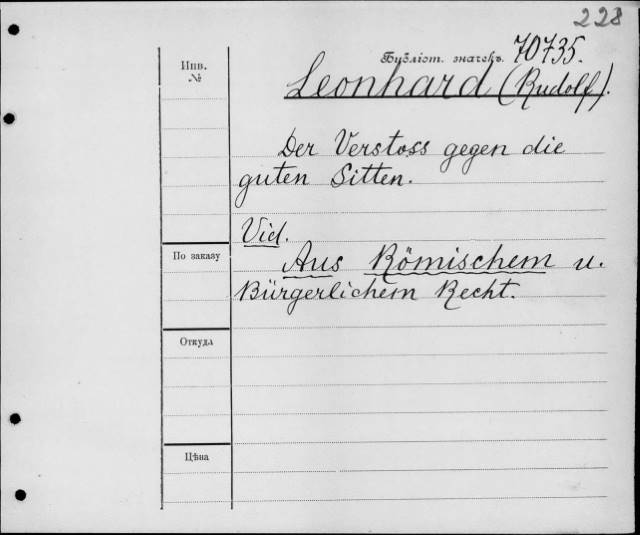 228
Инв.
№
Бубліот. значекъ. 70735.
Leonhard (Rudolf).
Der Verstoss gegen die
guten Sitten.
Vid.
Aus Römischem u.
Bürgerlichem Recht.
По заказу
Откуда
Цѣна